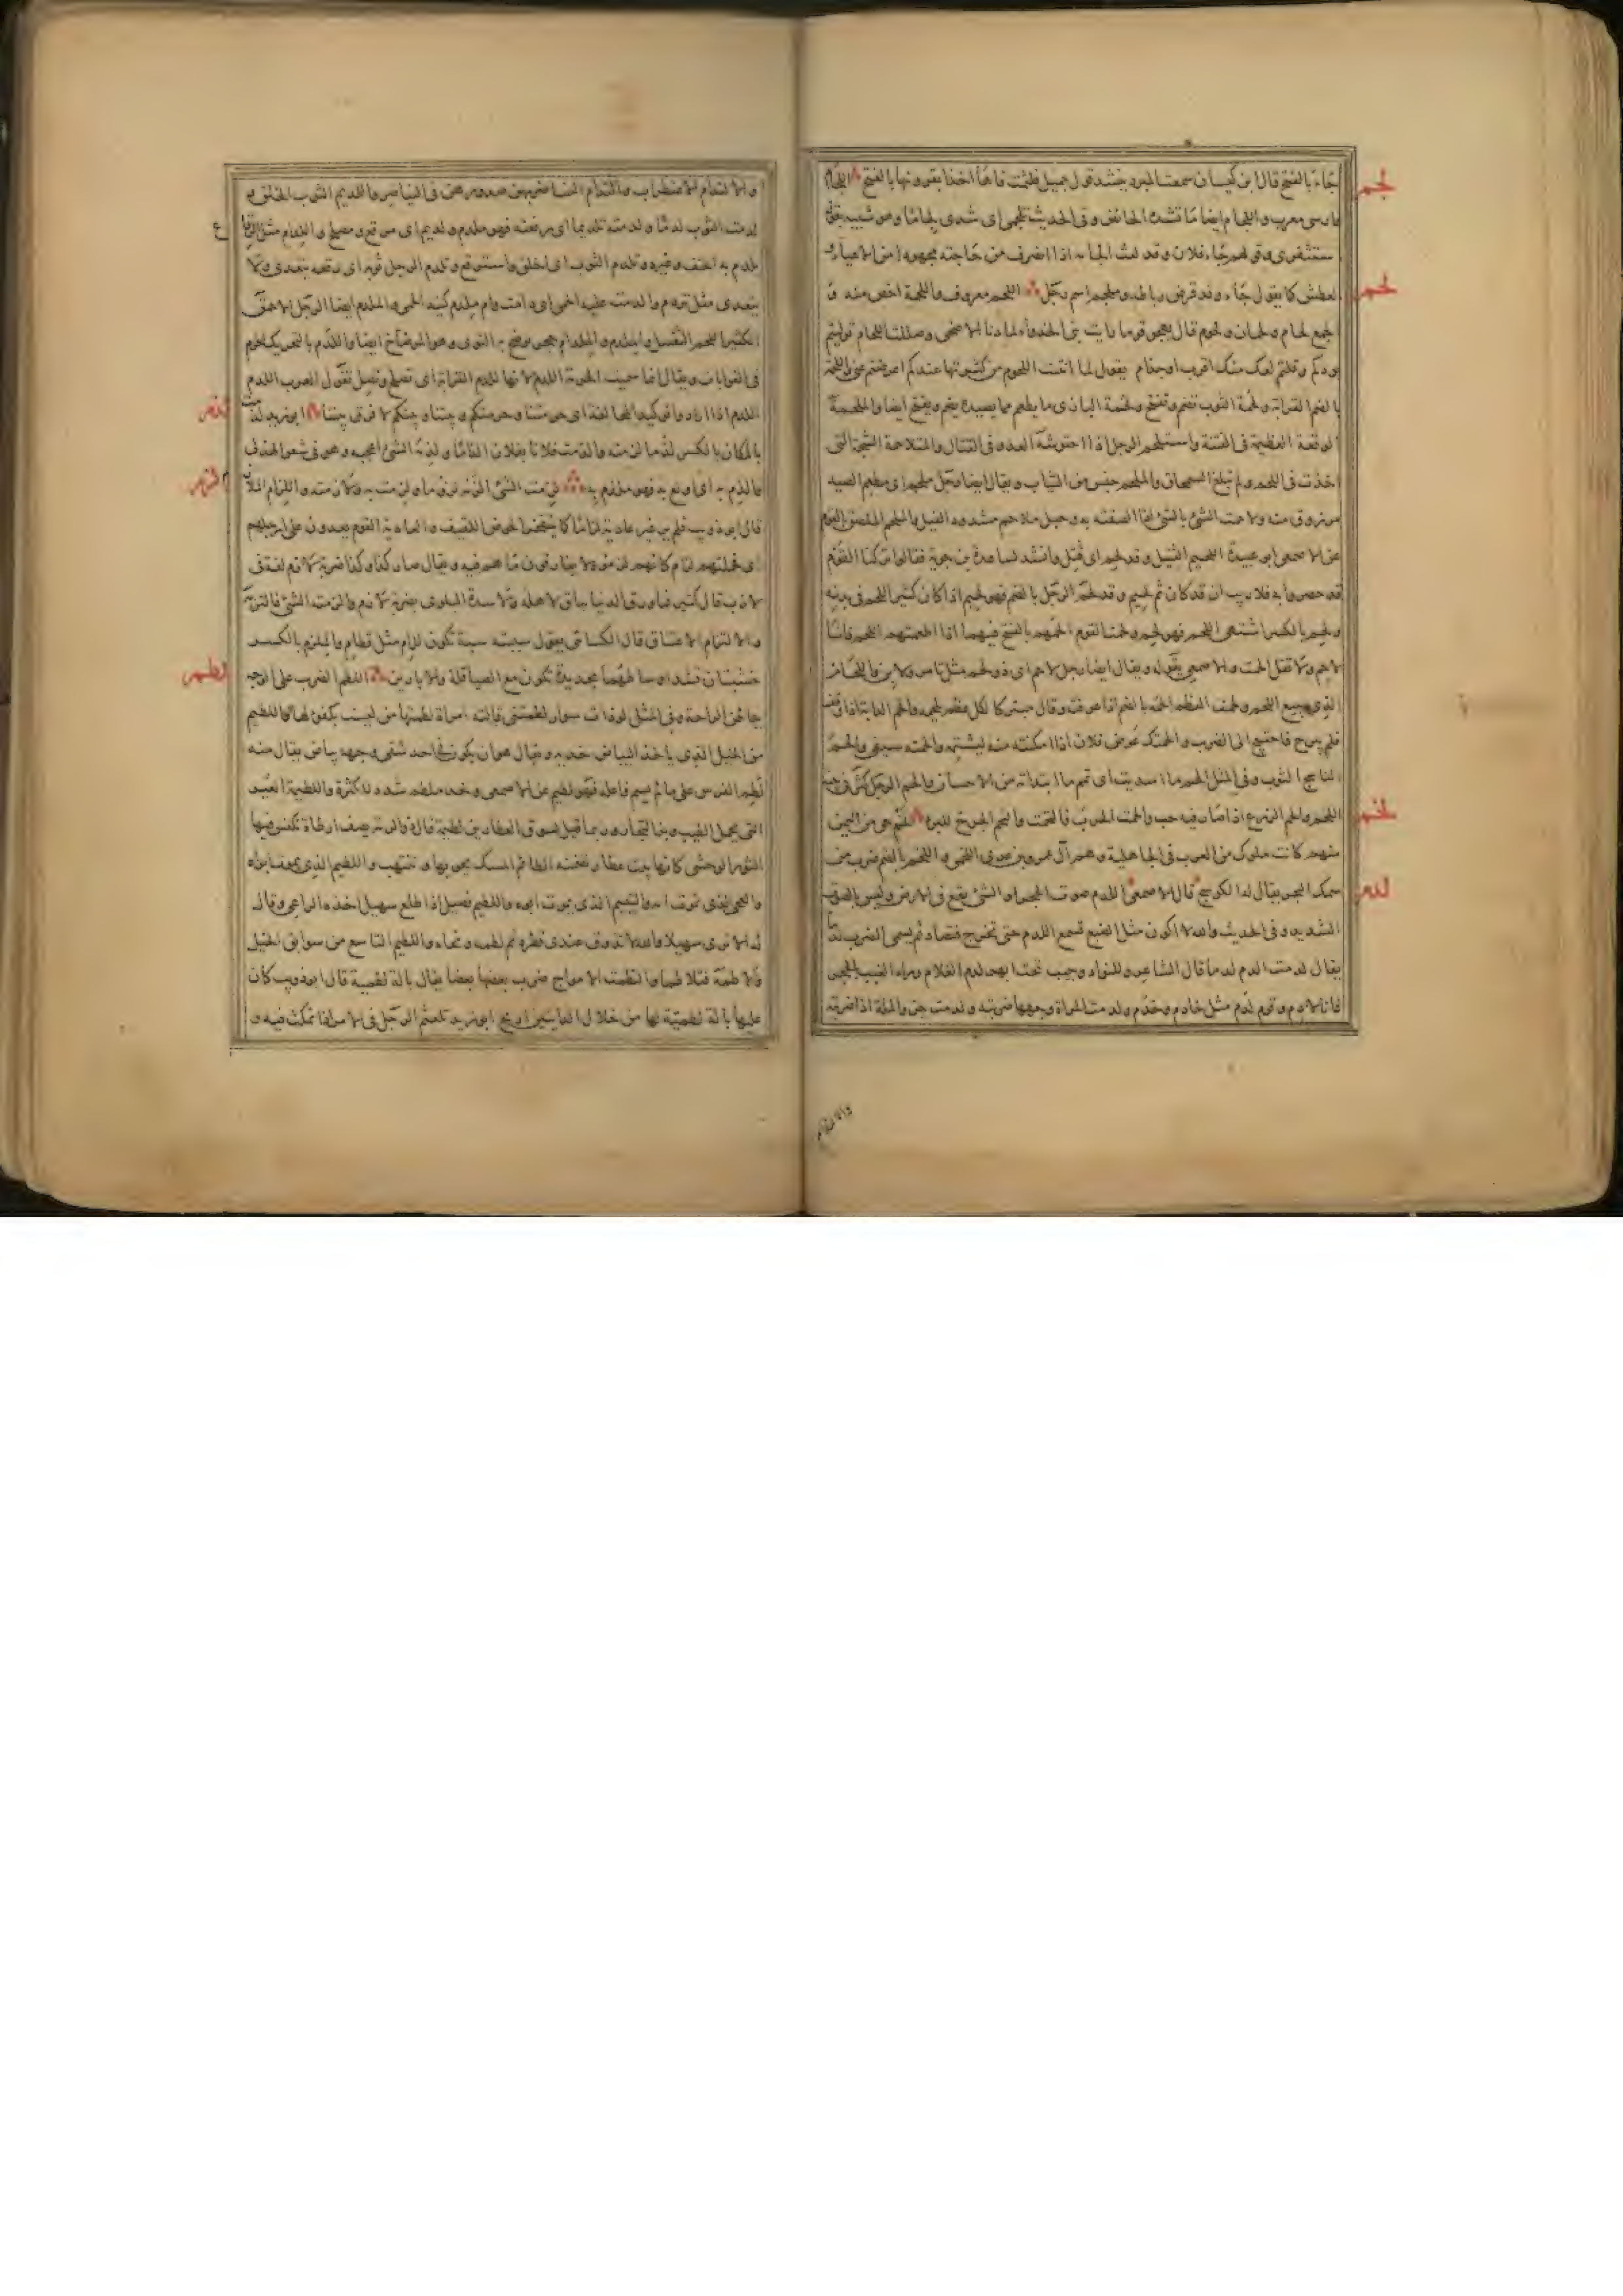 لجم
بجاء بالفتح قال ابن كيسان سمعت المبرد ينشد قول جميل فلثمت فاها آخذا بقرونها بالفتح اللجام
فارسى معرب واللجام ايضا ما تشده الحائض وفى الحديث تلجمى اى شدى لجاما وهو شبيه بقوله
استثفرى وقولهم جاء فلان وقد لفظ لجامه اذا انصرف من حاجته مجهودا من الاعياء و
لحم
العطش كما يقول جاء وقد قرض رباطه وملجم اسم رجل اللحم معروف واللحمة اخص منه و
الجمع لحام ولحمان ولحوم قال يهجو قوما رايت بنى الخذواء لما دنا الاضحى وصللت اللحام توليتم
بودكم وقلتم لعك منك اقرب او جذام يقول لما انتنت اللحوم من كثرتها عندكم اعرضتم عنى واللحمة
بالضم القرابة ولحمة الثوب تضم وتفتح ولحمة البازى ما يطعم مما يصيده يضم ويفتح ايضا والملحمة
الوقعة العظيمة فى الفتنة واستلحم الرجل اذا احتوشه العدو فى القتال والمتلاحمة الشجة التى
اخذت فى اللحم ولم تبلغ السمحاق والملحم جنس من الثياب ويقال ايضا رجل ملحم اى مطعم للصيد
مرزوق منه ولاحمت الشئ بالشئ اذا الصقته به وحبل ملاحم مشدود الفتل والملحم الملصق بالقوم
عن الاصمعى ابو عبيدة اللحيم القتيل وقد لحم اى قتل وانشد لساعدة بن جوية فقالوا تركنا القوم
قد حصروا به فلا ريب ان قد كان ثم لحيم وقد لحم الرجل بالضم فهو لحيم اذا كان كثير اللحم فى بدنه
ولحم بالكسر اشتهى اللحم فهو لحم ولحمت القوم الحمهم بالفتح فيهما اذا اطعمتهم اللحم فانا
لاحم ولا تقل الحمت والاصمعى يقوله ويقال ايضا رجل لاحم اى ذو لحم مثل تامر ولابن واللحام
الذى يبيع اللحم ولحمت العظم الحمه بالضم اذا عرقته وقال مبتركا لكل عظم يلحمه والحم الدابة اذا وقف
فلم يبرح فاحتيج الى الضرب والحمتك عرض فلان اذا امكنته منه يشتمه والحمته سيفى والحم
الناسج الثوب وفى المثل الحم ما اسديت اى تمم ما ابتداته من الاحسان والحم الرجل كثر فى بيته
لخم
اللحم والحم الزرع اذا صار فيه حب والحمت الحرب فالتحمت والتحم الجرح للبرء لخم حى من اليمن
منهم كانت ملوك من العرب فى الجاهلية وهم آل عمرو بن عدى اللخمى واللخم بالضم ضرب من
لدم
سمك البحر يقال له الكوسج قال الاصمعى اللدم صوت الحجر او الشئ يقع فى الارض وليس بالصوت
الشديد وفى الحديث والله لا اكون مثل الضبع تسمع اللدم حتى تخرج فتصاد ثم يسمى الضرب لدما
يقال لدمت الدم لدما قال الشاعر وللفؤاد وجيب تحت ابهره لدم الغلام وراء الغيب بالحجر
فانا لادم وقوم لدم مثل خادم وخدم ولدمت المراة وجهها ضربته ولدمت خبز الملة اذا ضربته
والالتدام
والالتدام الاضطراب والتدام النساء ضربهن صدورهن فى النياحة واللديم الثوب الخلق و
لدمت الثوب لدما ولدمته تلديما اى رقعته فهو ملدم ولديم اى مرقع ومصلح واللدام مثل الرقاع
ع
يلدم به الخف وغيره وتلدم الثوب اى اخلق واسترقع وتلدم الرجل ثوبه اى رقعه يتعدى ولا
يتعدى مثل تردم والدمت عليه الحمى اى دامت وام ملدم كنية الحمى والملدم ايضا الرجل الاحمق
الكثير اللحم الثقيل والملدم والملدام حجر يرضخ به النوى وهو المرضاخ ايضا واللدم بالتحريك الحرم
فى القرابات ويقال انما سميت الحرمة اللدم لانها تلدم القرابة اى تصلح وتصل تقول العرب اللدم
لذم
اللدم اذا ارادوا توكيد المحالفة اى حرمتنا وحرمتكم وبيتنا وبيتكم لا فرق بيننا ابو زيد لذمت
بالمكان بالكسر لذما لزمته والذمت فلانا بفلان الذاما ولذم به الشئ اعجبه وهو فى شعر الهذلى
لزم
والذم به اى اولع به فهو ملذم به لزمت الشئ الزمه لزوما ولزمت به ولازمته واللزام الملازم
قال ابو ذويب فلم ير غير عادية لزاما كما يتفجر الحوض اللقيف والعادية القوم يعدون على ارجلهم
اى فحملتهم لزام كانهم لزموه لا يفارقون ما هم فيه ويقال صار كذا وكذا ضربة لازم لغة فى
لازب قال كثير فما ورق الدنيا بباق لاهله ولا شدة البلوى بضربة لازم والزمته الشئ فالتزمه
والالتزام الاعتناق قال الكسائى يقول سببته سبة تكون لزام مثل قطام والملزم بالكسر
لطم
خشبتان تشد اوساطهما بحديدة تكون مع الصياقلة والابارين اللطم الضرب على الوجه
بباطن الراحة وفى المثل لو ذات سوار لطمتنى قالته امراة لطمتها من ليست بكفؤ لها واللطيم
من الخيل الذى ياخذ البياض خديه ويقال هو ان يكون فى احد شقى وجهه بياض يقال منه
لطم الفرس على ما لم يسم فاعله فهو لطيم عن الاصمعى وخد ملطم شدد للكثرة واللطيمة العير
التى تحمل الطيب وبز التجار وربما قيل لسوق العطارين لطيمة قال ذو الرمة يصف ارطاة تكنس فيها
الثور الوحشى كانها بيت عطار تضمنه لطائم المسك يحويها وتنتهب واللطيم الذى يموت ابواه
والعجى الذى تموت امه واليتيم الذى يموت ابوه واللطيم فصيل اذا طلع سهيل اخذه الراعى وقال
له اترى سهيلا والله لا تذوق عندى قطرة ثم لطمه ونحاه واللطيم التاسع من سوابق الخيل
ولاطمه فتلاطما والتطمت الامواج ضرب بعضها بعضا يقال بالة لطمية قال ابو ذويب كان
عليها بالة لطمية لها من خلال الدايتين اريج ابو زيد تلعثم الرجل فى الامر اذا تمكث فيه و